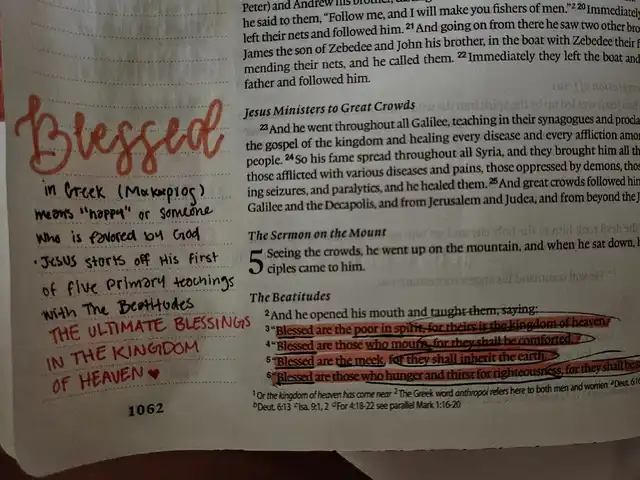 Blessed
in Greek (Μακαριος)
means "happy" or someone
who is favored by God
· Jesus starts off His first
of five primary teachings
with The Beatitudes
THE ULTIMATE BLESSINGS
IN THE KINGDOM
OF HEAVEN ♥
1062
Peter) and Andrew his brother,
he said to them, "Follow me, and I will make you fishers of men."² ²⁰ Immediately
left their nets and followed him. ²¹ And going on from there he saw two other
James the son of Zebedee and John his brother, in the boat with Zebedee their
mending their nets, and he called them. ²² Immediately they left the boat and
father and followed him.
Jesus Ministers to Great Crowds
²³ And he went throughout all Galilee, teaching in their synagogues and
the gospel of the kingdom and healing every disease and every affliction
people. ²⁴ So his fame spread throughout all Syria, and they brought him all
those afflicted with various diseases and pains, those oppressed by demons,
ing seizures, and paralytics, and he healed them. ²⁵ And great crowds followed
Galilee and the Decapolis, and from Jerusalem and Judea, and from beyond the
The Sermon on the Mount
5 Seeing the crowds, he went up on the mountain, and when he sat down,
ciples came to him.
The Beatitudes
² And he opened his mouth and taught them, saying:
³ "Blessed are the poor in spirit, for theirs is the kingdom of heaven.
⁴ "Blessed are those who mourn, for they shall be comforted.
⁵ "Blessed are the meek, for they shall inherit the earth.
⁶ "Blessed are those who hunger and thirst for righteousness, for they shall be
¹ Or the kingdom of heaven has come near ² The Greek word anthropoi refers here to both men and women ᵃ Deut.
ᵇ Deut. 6:13 ᶜ Isa. 9:1, 2 ᵈ For 4:18-22 see parallel Mark 1:16-20